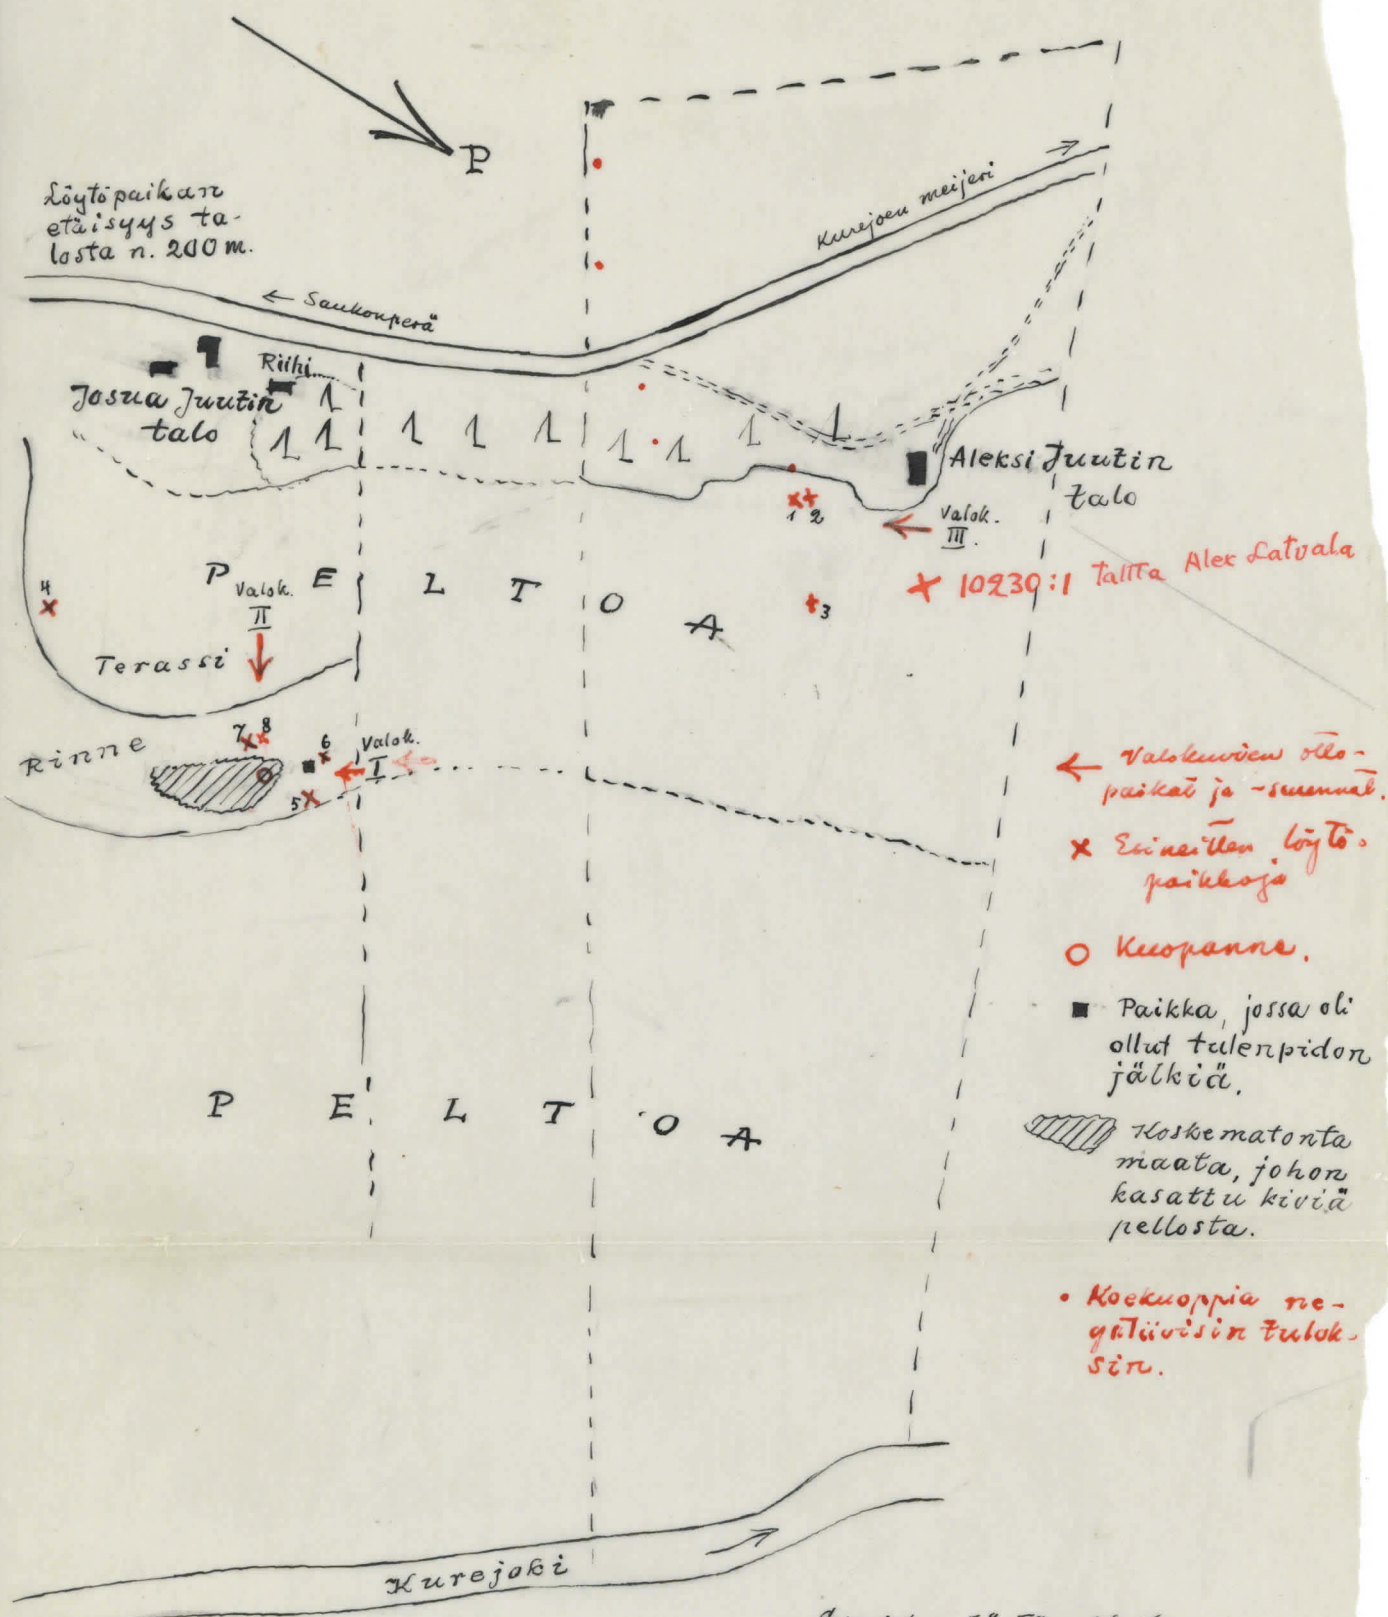 P
Löytöpaikan
etäisyys ta-
losta n. 200 m.
Kurejoen meijeri
← Saukonperä
Riihi
Josua Juutin
talo
Aleksi Juutin
talo
1 2
Valok.
III.
10230:1 Taltta Alex Latvala
4
P E L T O A
Valok.
II
3
Terassi
Rinne
7 8
6
5
Valok.
I
Valokuvien otto-
paikat ja -suunnat.
Esineitten löytö-
paikkoja
Kuopanne.
Paikka, jossa oli
ollut tulenpidon
jälkiä.
P E L T O A
Koskematonta
maata, johon
kasattu kiviä
pellosta.
Koekuoppia ne-
gatiivisin tulok-
sin.
Kurejoki